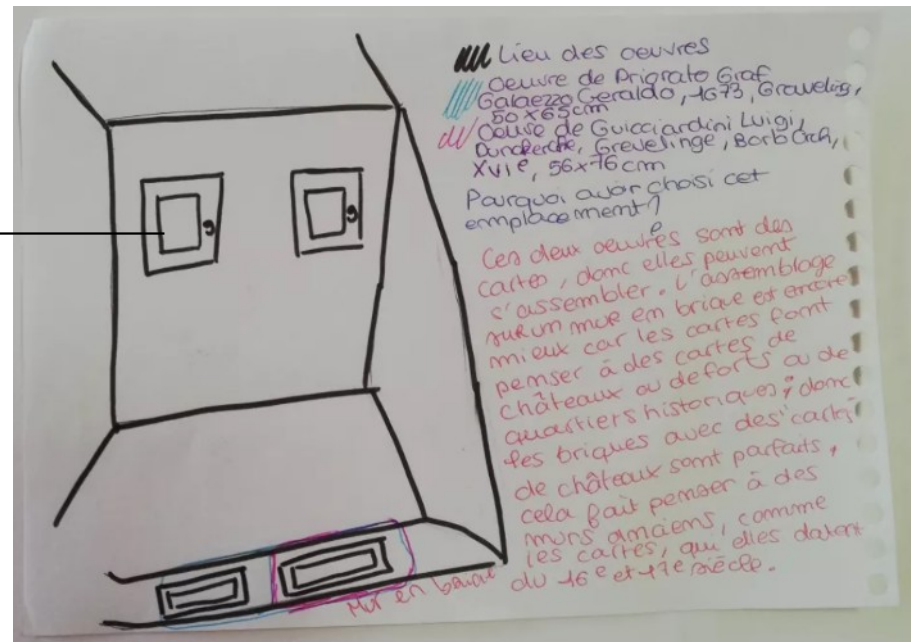 Lieu des oeuvres
Oeuvre de Priorato Graf
Galaezzo Geraldo, 1673, Gravelins,
50x65cm
Oeuvre de Guicciardini Luigi,
Dunckerche, Grevelinge, Borbürch,
XVIe, 56x76cm
Pourquoi avoir choisi cet
emplacement?
Ces deux oeuvres sont des
cartes, donc elles peuvent
s'assembler. L'assemblage
sur un mur en brique est encore
mieux car les cartes font
penser à des cartes de
châteaux ou de forts ou de
quartiers historiques; donc
les briques avec des cartes
de châteaux sont parfaits,
cela fait penser à des
murs anciens, comme
les cartes, qui elles datent
du 16e et 17e siècle.
Mur en brique